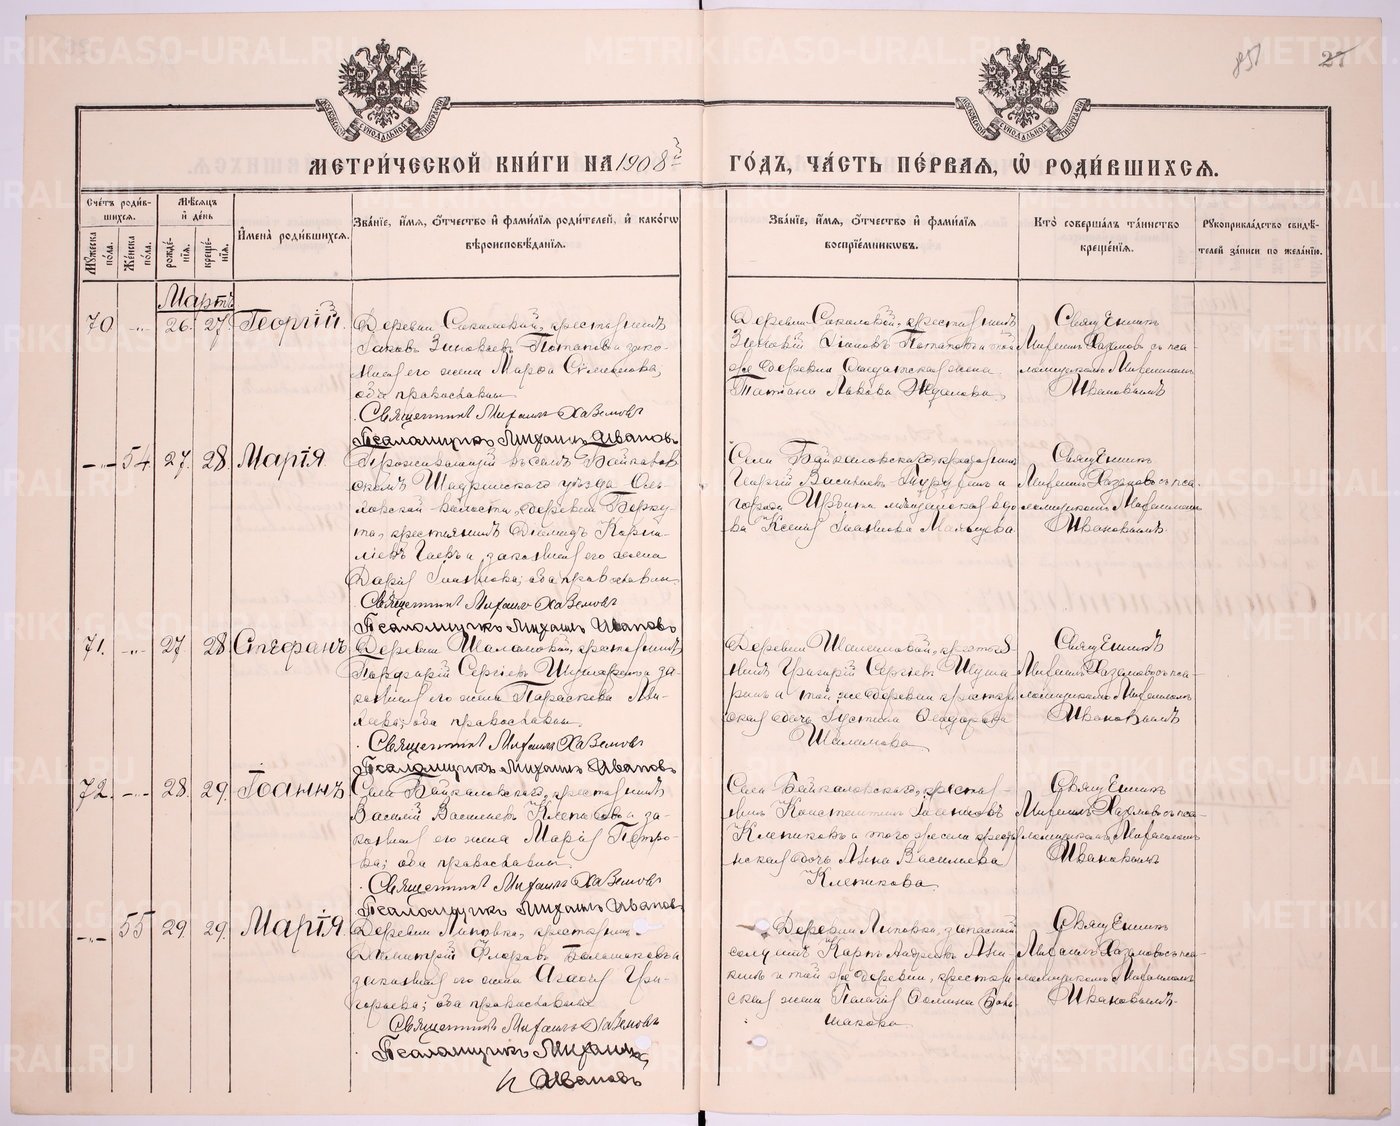 851 27
МЕТРИ́ЧЕСКОЙ КНИ́ГИ НА 1908 ГО́ДЪ, ЧА́СТЬ ПЕ́РВАЯ, Ѡ РОДИ́ВШИХСѦ.
Сче́тъ роди́вшихся.
Мꙋ́жеска по́ла.
Же́нска по́ла.
Мѣ́сяцъ и де́нь
рожде́нія.
креще́нія.
Имена̀ роди́вшихся.
Зва́ніе, и́мя, о́тчество и фами́лія роди́телей, и како́гѡ вѣроисповѣ́данія.
Зва́ніе, и́мя, о́тчество и фами́лія воспріе́мникѡвъ.
Кто̀ соверша́лъ та́инство креще́нія.
Рꙋкоприкла́дство свидѣ́телей за́писи по жела́нію.
Мартъ
70 -"- 26. 27. Георгій.
Деревни Соколовой, крестьянинъ
Іаковъ Зиновьевъ Потаповъ и зако-
нная его жена Марѳа Симеонова,
оба православны
Священникъ Михаилъ Хаземовъ
Псаломщикъ Михаилъ Ивановъ
Деревни Соколовой, крестьянинъ
Зиновій Потаповъ и той
же деревни жена
Татіана Львова Жданова.
Священникъ
Михаилъ Хаземовъ съ пса-
ломщикомъ Михаиломъ
Ивановымъ
-"- 54 27. 28. Марія.
Проживающій въ селѣ Байкалов-
скомъ Шадринскаго уѣзда Оль-
ховской волости, деревни
крестьянинъ Діомидъ Корни-
ліевъ и законная его жена
Дарія Іоаннова; оба православны.
Священникъ Михаилъ Хаземовъ
Псаломщикъ Михаилъ Ивановъ
Села Байкаловскаго, крестьянинъ
Георгій Васильевъ и
города Ирбита мѣщанская вдо-
ва Ксенія Іоаннова Мальцева
Священникъ
Михаилъ Хаземовъ съ пса-
ломщикомъ Михаиломъ
Ивановымъ
71. -"- 27 28 Стефанъ
Деревни Шаламовой, крестьянинъ
Сергіевъ и за-
конная его жена Параскева
оба православны.
Священникъ Михаилъ Хаземовъ
Псаломщикъ Михаилъ Ивановъ
Деревни Шаламовой, крестья-
нинъ Григорій Сергіевъ
и той же деревни крестьян-
ская дочь Іустина Ѳеодорова
Шаламова
Священникъ
Михаилъ Хаземовъ съ пса-
ломщикомъ Михаиломъ
Ивановымъ
72. -"- 28. 29. Іоаннъ
Села Байкаловскаго, крестьянинъ
Василій Васильевъ Клепиковъ и за-
конная его жена Марія Петро-
ва; оба православны.
Священникъ Михаилъ Хаземовъ
Псаломщикъ Михаилъ Ивановъ
Села Байкаловскаго, крестья-
нинъ Константинъ Іоанновъ
Клепиковъ и того же села крестья-
нская дочь Анна Васильева
Клепикова.
Священникъ
Михаилъ Хаземовъ съ пса-
ломщикомъ Михаиломъ
Ивановымъ
-"- 55 29. 29. Марія.
Деревни Липовка, крестьянинъ
Димитрій Флоровъ Большаковъ и
законная его жена Агаѳія Гри-
горьева; оба православны
Священникъ Михаилъ Хаземовъ
Псаломщикъ Михаилъ
Ивановъ
Деревни Липовка, запасный
солдатъ Карпъ Андреевъ
и той же деревни, крестьян-
ская жена Пелагія Ѳомина Боль-
шакова
Священникъ
Михаилъ Хаземовъ съ пса-
ломщикомъ Михаиломъ
Ивановымъ
METRIKI.GASO-URAL.RU